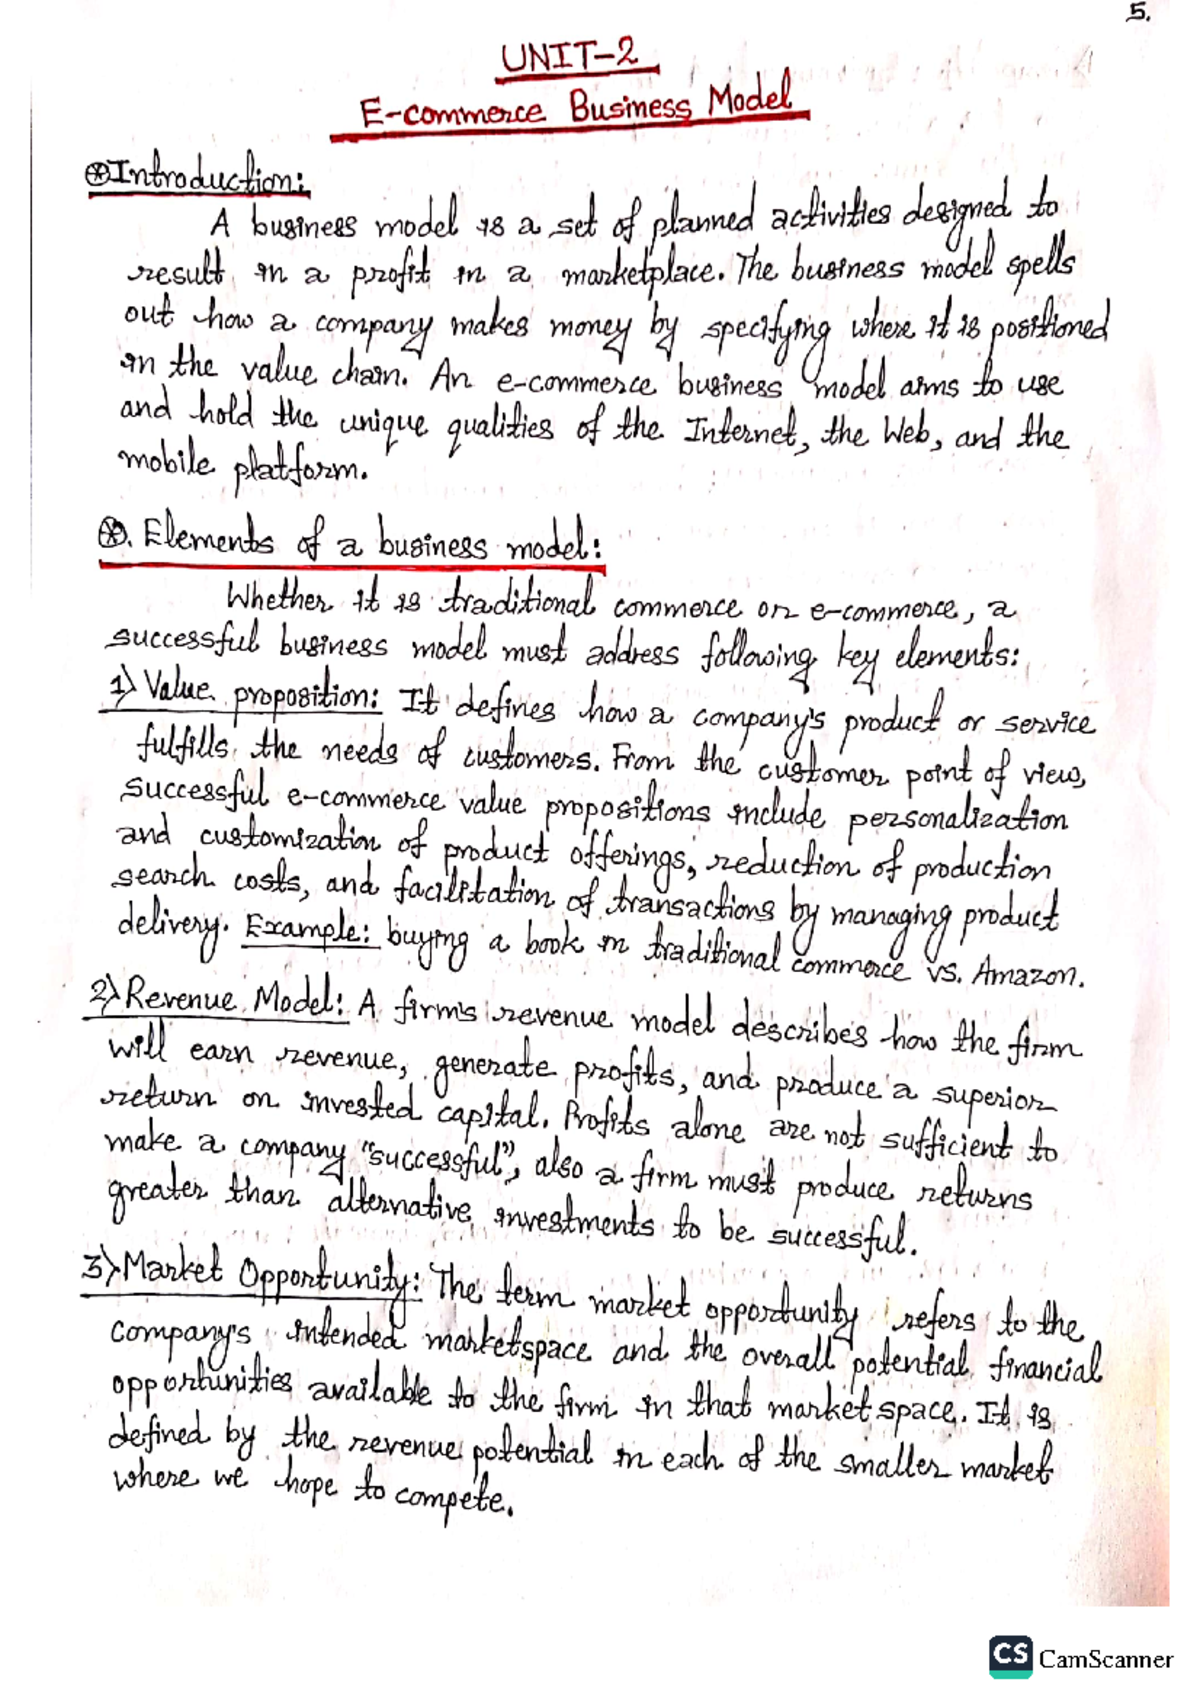 5.
UNIT-2
E-commerce Business Model
Introduction:
A business model is a set of planned activities designed to
result in a profit in a marketplace. The business model spells
out how a company makes money by specifying where it is positioned
in the value chain. An e-commerce business model aims to use
and hold the unique qualities of the Internet, the Web, and the
mobile platform.
Elements of a business model:
Whether it is traditional commerce or e-commerce, a
successful business model must address following key elements:
1) Value proposition: It defines how a company's product or service
fulfills the needs of customers. From the customer point of view,
successful e-commerce value propositions include personalization
and customization of product offerings, reduction of production
search costs, and facilitation of transactions by managing product
delivery. Example: buying a book in traditional commerce vs. Amazon.
2) Revenue Model: A firm's revenue model describes how the firm
will earn revenue, generate profits, and produce a superior
return on invested capital. Profits alone are not sufficient to
make a company "successful", also a firm must produce returns
greater than alternative investments to be successful.
3) Market Opportunity: The term market opportunity refers to the
company's intended marketspace and the overall potential financial
opportunities available to the firm in that market space. It is
defined by the revenue potential in each of the smaller market
where we hope to compete.
CS CamScanner